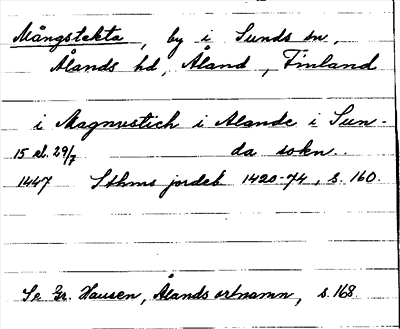 Mångstekta, by i Sunds sn,
Ålands hd, Åland, Finland
i Magnustich i Alande i Sun-
15 el. 29/7 da sokn.
1447 Sthms jordeb 1420-74, s. 160.
Se Gr. Hausen, Ålands ortnamn, s. 168.